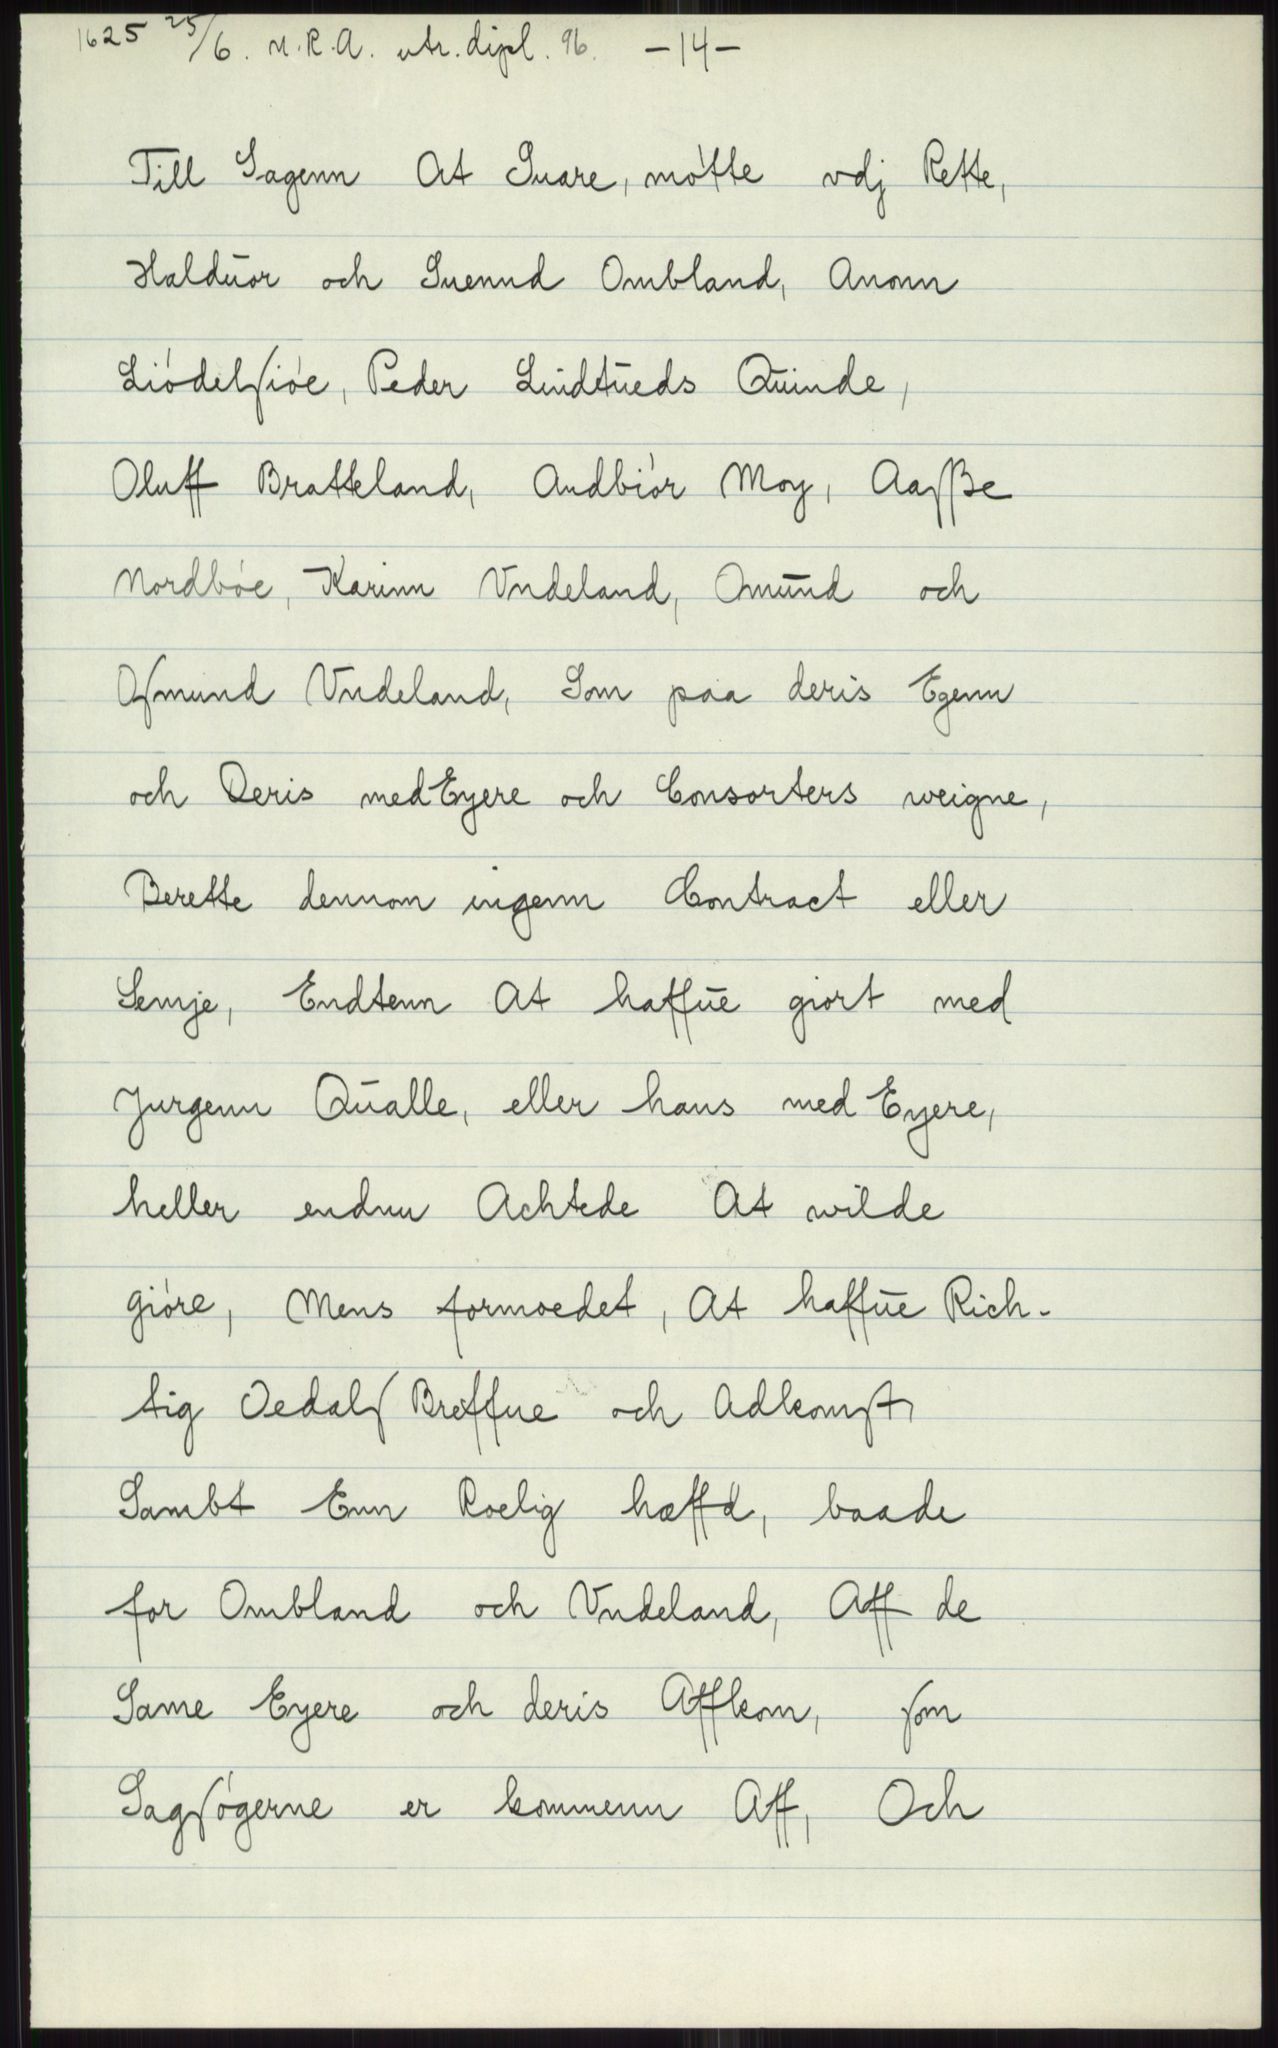 1625 25/6. N.R.A. utr. dipl. 96. -14-
Till Sagenn At Suare, mótte vdj Rette,
Haldūor och Suennd Ombland, Anonn
Liódelsióe, Peder Lindtūeds Qūinde,
Oluff Bratteland, Audbiór Moy, Aasße
Nordbóe, Karinn Vndeland, Omūnd och
Osmund Vndeland, Som paa deris Egenn
och Deris medEyere och Consorters weigne,
Berette dennom ingenn Contract eller
Semje, Endtenn At haffūe giort med
Jurgenn Qūalle, eller hans med Eyere,
heller endnu Achtede At wilde
gióre, Mens formoedet, At haffūe Rich-
tig Oedals Breffue och Adkomst,
Sambt Enn Roelig hæffd, baade
for Ombland och Vndeland, Aff de
Same Eyere och deris Affkom, som
Sagsógerne er kommenn Aff, Och